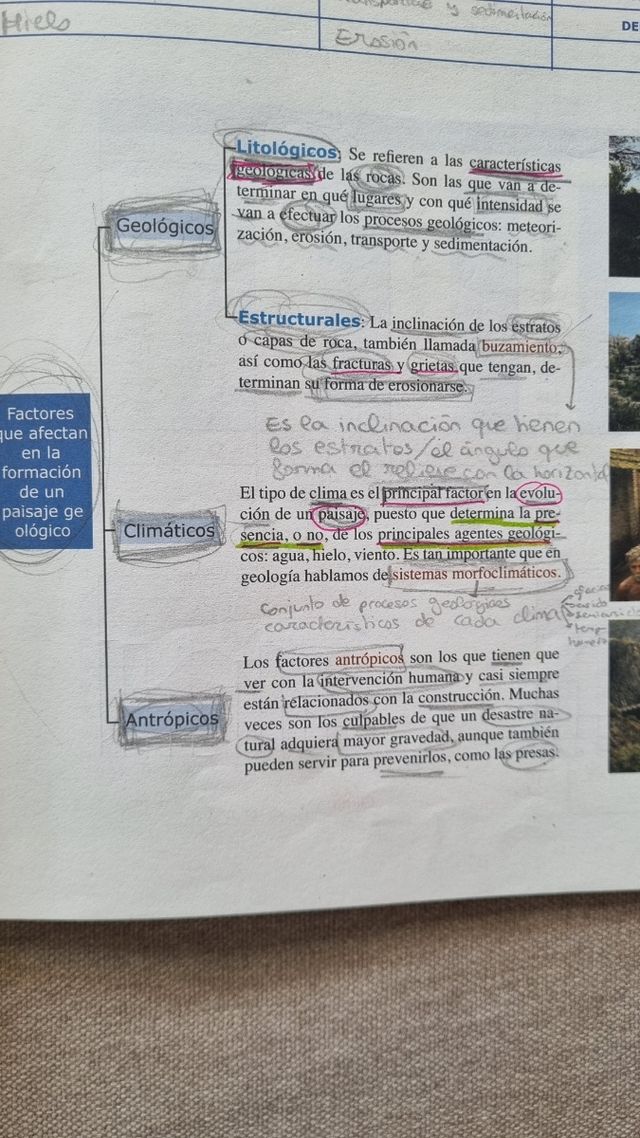 Hielo
y sedimentación
Erosión
DE
Litológicos: Se refieren a las características
geológicas de las rocas. Son las que van a de-
terminar en qué lugares y con qué intensidad se
van a efectuar los procesos geológicos: meteori-
zación, erosión, transporte y sedimentación.
Geológicos
Estructurales: La inclinación de los estratos
o capas de roca, también llamada buzamiento,
así como las fracturas y grietas que tengan, de-
terminan su forma de erosionarse.
Es la inclinación que tienen
los estratos/el ángulo que
forma el relieve con la horizontal
Factores
que afectan
en la
formación
de un
paisaje ge
ológico
Climáticos
El tipo de clima es el principal factor en la evolu-
ción de un paisaje, puesto que determina la pre-
sencia, o no, de los principales agentes geológi-
cos: agua, hielo, viento. Es tan importante que en
geología hablamos de sistemas morfoclimáticos.
Conjunto de procesos geológicos
característicos de cada clima
Antrópicos
Los factores antrópicos son los que tienen que
ver con la intervención humana y casi siempre
están relacionados con la construcción. Muchas
veces son los culpables de que un desastre na-
tural adquiera mayor gravedad, aunque también
pueden servir para prevenirlos, como las presas.